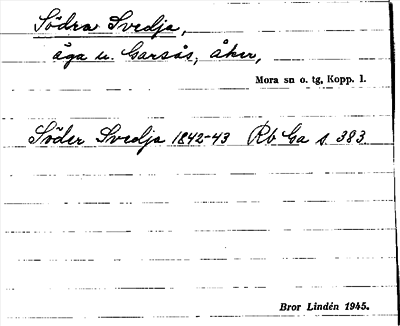 Södra Svedja,
äga u. Garsås, åker,
Mora sn o. tg, Kopp. l.
Söder Svedja 1842-43 Rb Ga s. 383.
Bror Lindén 1945.